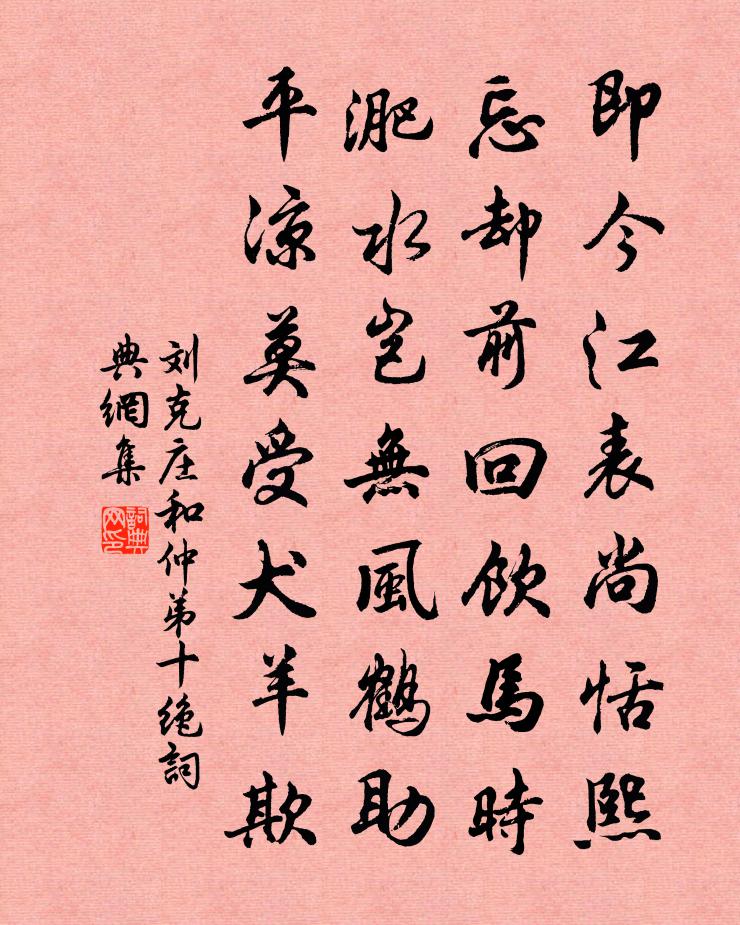 即今江表尚恬熙
忘却前回飲馬時
淝水岂無風鶴助
平凉莫受犬羊欺
刘克庄和仲弟十绝詞
典網集
詞典网印